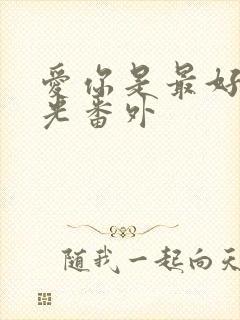 爱你是最好
光番外
随我一起向天